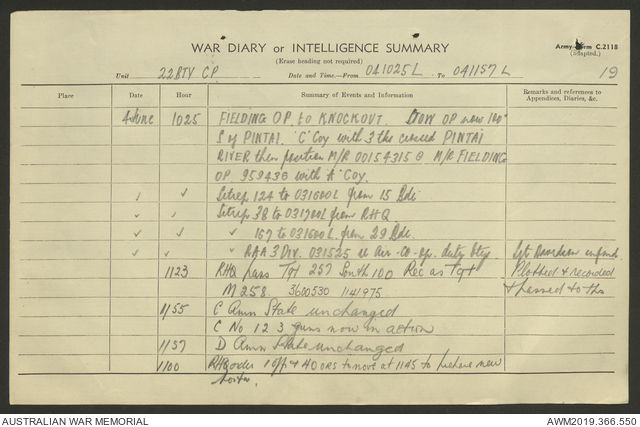 WAR DIARY or INTELLIGENCE SUMMARY
(Erase heading not required)
Army Form C.2118
(adapted.)
Unit 22 BTY C.P. Date and Time.—From 041025L To 041157L
19
Place Date Hour Summary of Events and Information Remarks and references to Appendices, Diaries, &c.
4 June 1025 FIELDING OP to KNOCKOUT. OP now 100x
S of PINTAI. "C" Coy with 3 the crossed PINTAI
RIVER then position M/R 00154315 M/R FIELDING
OP 959436 with A Coy.
Sitrep 124 to 031600L from 15 Bde
Sitrep 38 to 031700L from RHQ
" 157 to 031600L from 29 Bde.
" RAA 3 DIV. 031525 Air-co-op. duty Bty
1123 RHQ pass Tgt 257 South 100 Rec as Tgt Plotted & recorded
M 258 3600530 1141975 & passed to
1155 C Amn State unchanged
C No 12 3 guns now in action
1157 D Amn State unchanged
1100 RHQ order 1 off & 4 ORS to move at 1145 to prepare new
AUSTRALIAN WAR MEMORIAL
AWM2019.366.550